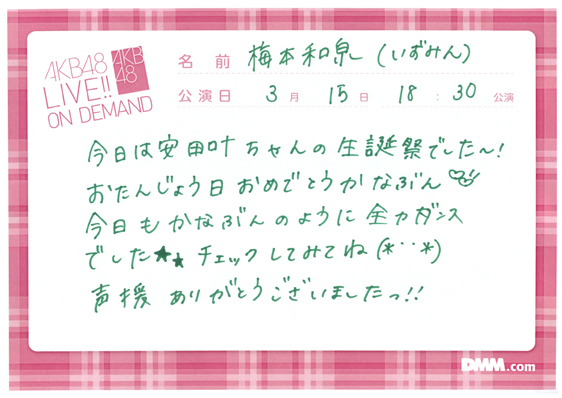 AKB48
LIVE!!
ON DEMAND
AKB
48
名前 梅本和泉(いずみん)
公演日 3月 15日 18:30 公演
今日は安田叶ちゃんの生誕祭でした〜!
おたんじょう日おめでとうかなぶん♡
今日もかなぶんのように全力ダンス
でした★★ チェックしてみてね(*¨*)
声援 ありがとうございましたっ!!
DMM.com